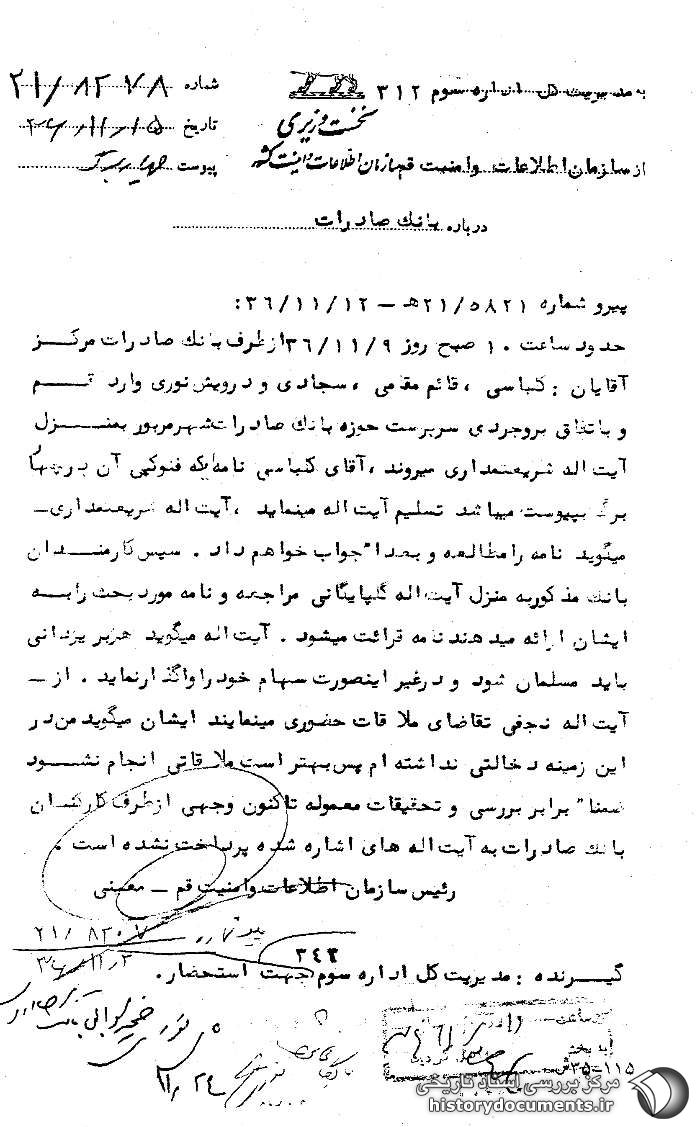 به مدیریت کل اداره سوم ۳۱۲
شماره ۲۱/۸۲۷۸
نخست وزیری
تاریخ ۳۶/۱۱/۱۵
از سازمان اطلاعات و امنیت قم سازمان اطلاعات و امنیت کشور
پیوست چهار برگ
درباره بانك صادرات
پیرو شماره ۲۱/۵۸۲۱ه‍ – ۳۶/۱۱/۱۲:
حدود ساعت ۱۰ صبح روز ۳۶/۱۱/۹ از طرف بانك صادرات مرکز
آقایان : کنباسی ، قائم مقامی ، سجادی و درویش نوری وارد قم
و باتفاق بروجردی سرپرست حوزه بانك صادرات شهر مزبور بمنزل
آیت اله شریعتمداری میروند ، آقای کنباسی نامه‌ایکه فتوکپی آن در چهار
برگ بپیوست میباشد تسلیم آیت اله مینماید ، آیت اله شریعتمداری –
میگوید نامه را مطالعه و بعدا" جواب خواهم داد . سپس کارمندان
بانك مذکور به منزل آیت اله گلپایگانی مراجعه و نامه مورد بحث را به
ایشان ارائه میدهند نامه قرائت میشود . آیت اله میگوید هژبر یزدانی
باید مسلمان شود و در غیر اینصورت سهام خود را واگذار نماید . از –
آیت اله نجفی تقاضای ملاقات حضوری مینمایند ایشان میگوید من در
این زمینه دخالتی نداشته ام پس بهتر است ملاقاتی انجام نشود
ضمنا" برابر بررسی و تحقیقات معموله تاکنون وجهی از طرف کارکنان
بانك صادرات به آیت اله های اشاره شده پرداخت نشده است .
رئیس سازمان اطلاعات و امنیت قم – معینی
۳۴۳
گیرنده : مدیریت کل اداره سوم جهت استحضار.
۳۵-۱۱۵ش
مرکز بررسی اسناد تاریخی
historydocuments.ir